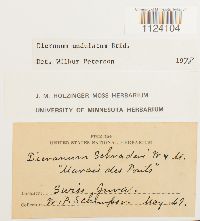 1124104
Dicranum undulatum Brid.
Det. Wilbur Peterson 1978
J. M. HOLZINGER MOSS HERBARIUM
UNIVERSITY OF MINNESOTA HERBARIUM
UNITED STATES NATIONAL HERBARIUM
Dicranum Schraderi W & M.
"Marais des Ponts"
Swiss Jura.
W. P. Schimper. May 47.